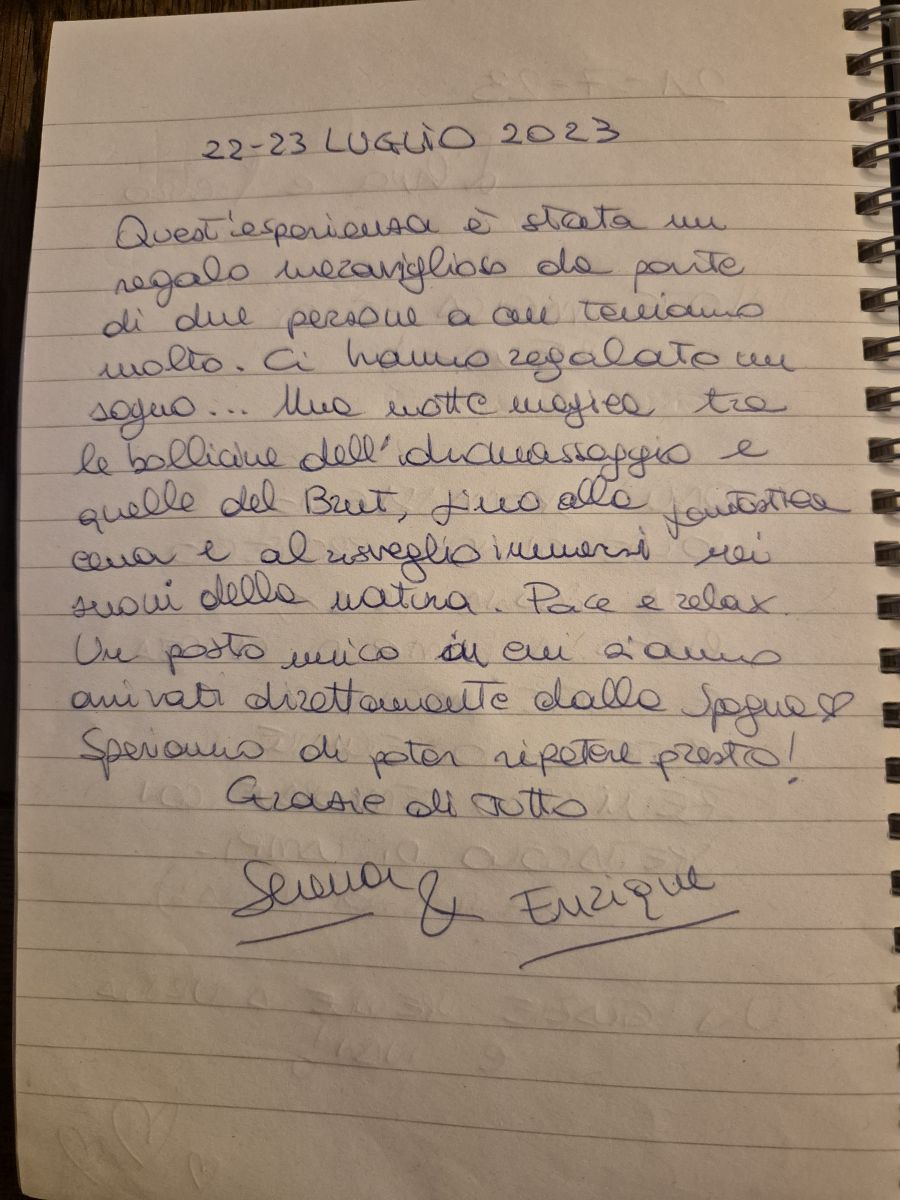 22-23 LUGLIO 2023
Quest'esperienza è stata un
regalo meraviglioso da parte
di due persone a cui teniamo
molto. Ci hanno regalato un
sogno... Una notte magica tra
le bollicine dell'idromassaggio e
quelle del Brut, fino alla fantastica
cena e al risveglio immersi nei
suoni della natura. Pace e relax.
Un posto unico in cui siamo
arrivati direttamente dalla Spagna ♡
Speriamo di poter ripetere presto!
Grazie di tutto
Serena & Enrique